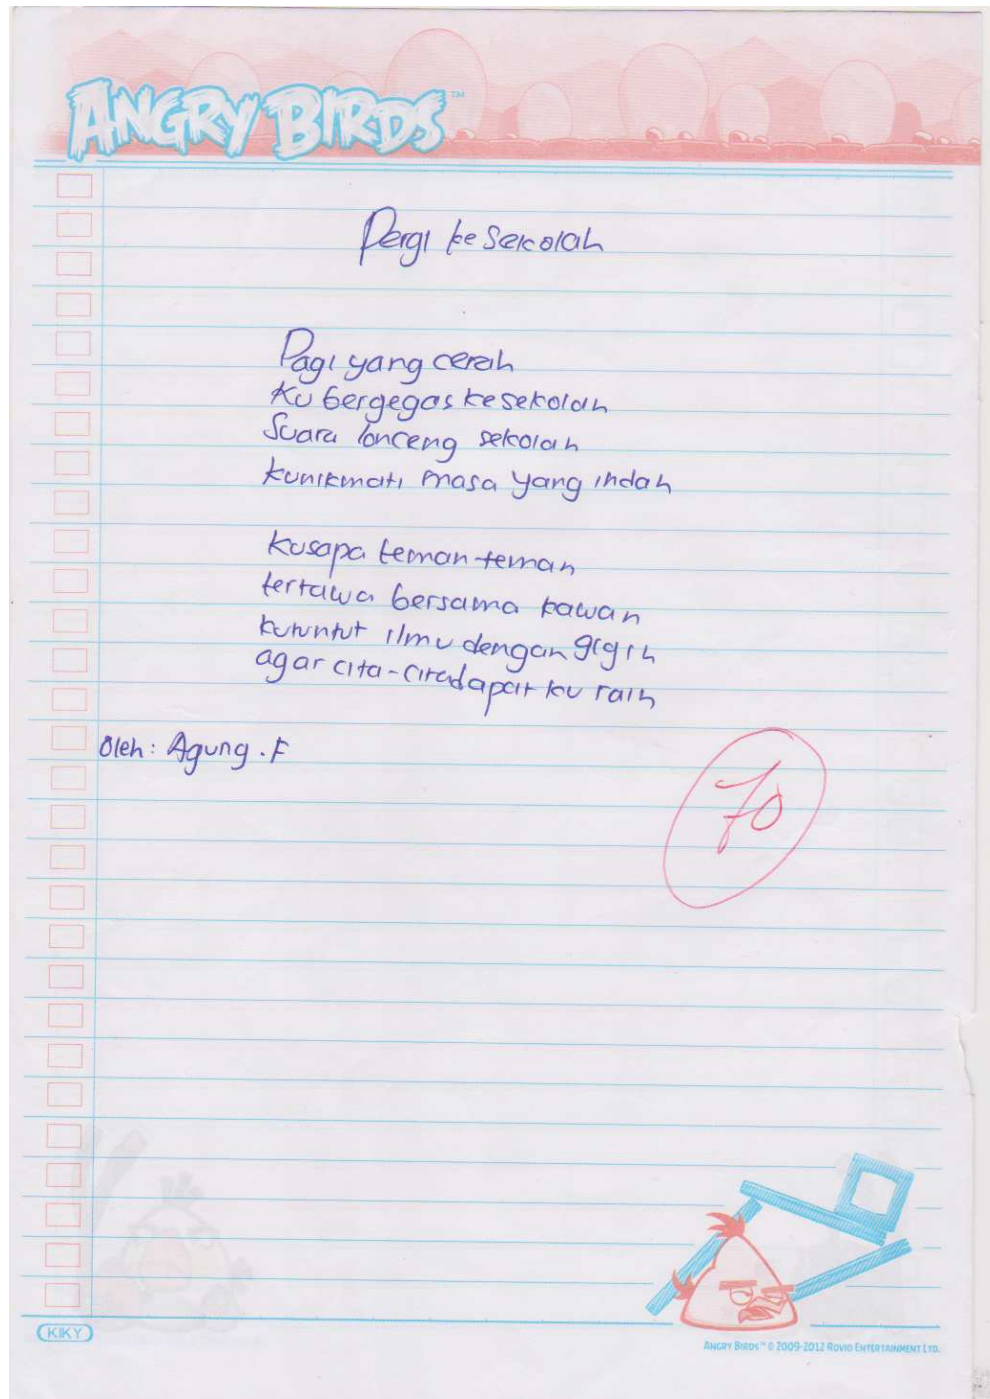 ANGRY BIRDS™
Pergi ke Sekolah
Pagi yang cerah
Ku bergegas kesekolah
Suara lonceng sekolah
kunikmati masa yang indah
kusapa teman-teman
tertawa bersama kawan
kutuntut ilmu dengan gigih
agar cita-cita dapat ku raih
Oleh: Agung . F
70
KIKY
ANGRY BIRDS™ © 2009-2012 ROVIO ENTERTAINMENT LTD.